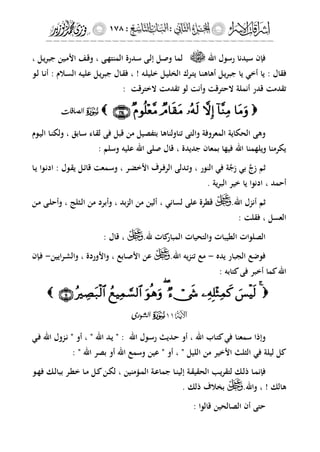 : ١٧٨ :
فإن سيدنا رسول الله ﷺ لما وصل إلى سدرة المنتهى ، وقف الأمين جبريل ،
فقال : يا أخي يا جبريل أهاهنا يترك الخليل خليله ! ، فقال جبريل عليه السلام : أنا لو
تقدمت قدر أنملة لاحترقت وأنت لو تقدمت لاخترقت :
﴿ وَمَا مِنَّآ إِلَّا لَهُۥ مَقَامٌ مَّعْلُومٌ ﴾ الصافات
وهى الحكاية المعروفة والتى تناولناها بتفصيل من قبل فى لقاء سابق ، ولكنا اليوم
يكرمنا ويلهمنا الله فيها بمعان جديدة ، قال صلى الله عليه وسلم :
ثم زج بي زجة في النور ، وتدلى الرفرف الأخضر ، وسمعت قائل يقول : ادنوا يا
أحمد ، ادنوا يا خير البرية .
ثم أنزل الله قطرة على لساني ، ألين من الزبد ، وأبرد من الثلج ، وأحلى من
العسل ، فقلت :
الصلوات الطيبات والتحيات المباركات لله ، قال :
فوضع الجبار يده – مع تنزيه الله عن الأصابع ، والأوردة ، والشرايين– فإن
الله كما أخبر فى كتابه :
﴿ لَيْسَ كَمِثْلِهِۦ شَىْءٌ ۖ وَهُوَ ٱلسَّمِيعُ ٱلْبَصِيرُ ﴾ ١١ الشورى
وإذا سمعنا في كتاب الله ، أو حديث رسول الله : " يد الله " ، أو " نزول الله في
كل ليلة في الثلث الأخير من الليل " ، أو " عين وسمع الله أو بصر الله " :
فإنما ذلك لتقريب الحقيقة إلينا جماعة المؤمنين ، لكن كل ما خطر ببالك فهو
هالك ! ، والله بخلاف ذلك .
حتى أن الصالحين قالوا :